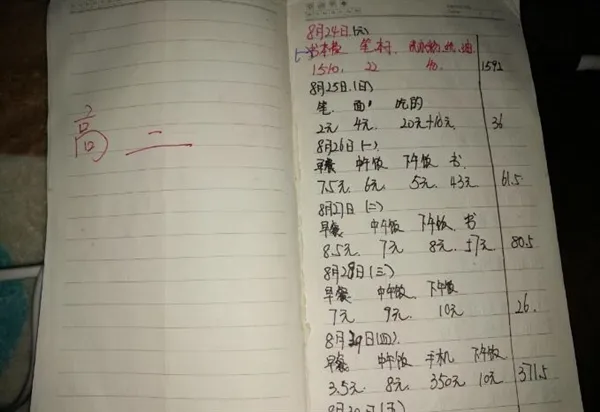 高二
8月24日(六)
书本费 笔
22 40. 1592
8月25日(日)
笔. 面 吃的
2元 4元. 20元+10元. 36
8月26日(一)
早餐 中午饭 下午饭 书
7.5元. 6元. 5元. 43元 61.5
8月27日(二)
早餐 中午饭 下午饭. 书
8.5元. 7元 8元. 57元. 80.5
8月28日(三)
早餐 中午饭. 下午饭
7元 9元. 10元 26.
8月29日(四).
早餐 中午饭 手机 下午饭
3.5元. 8元. 350元 10元 371.5
8月30日(五)